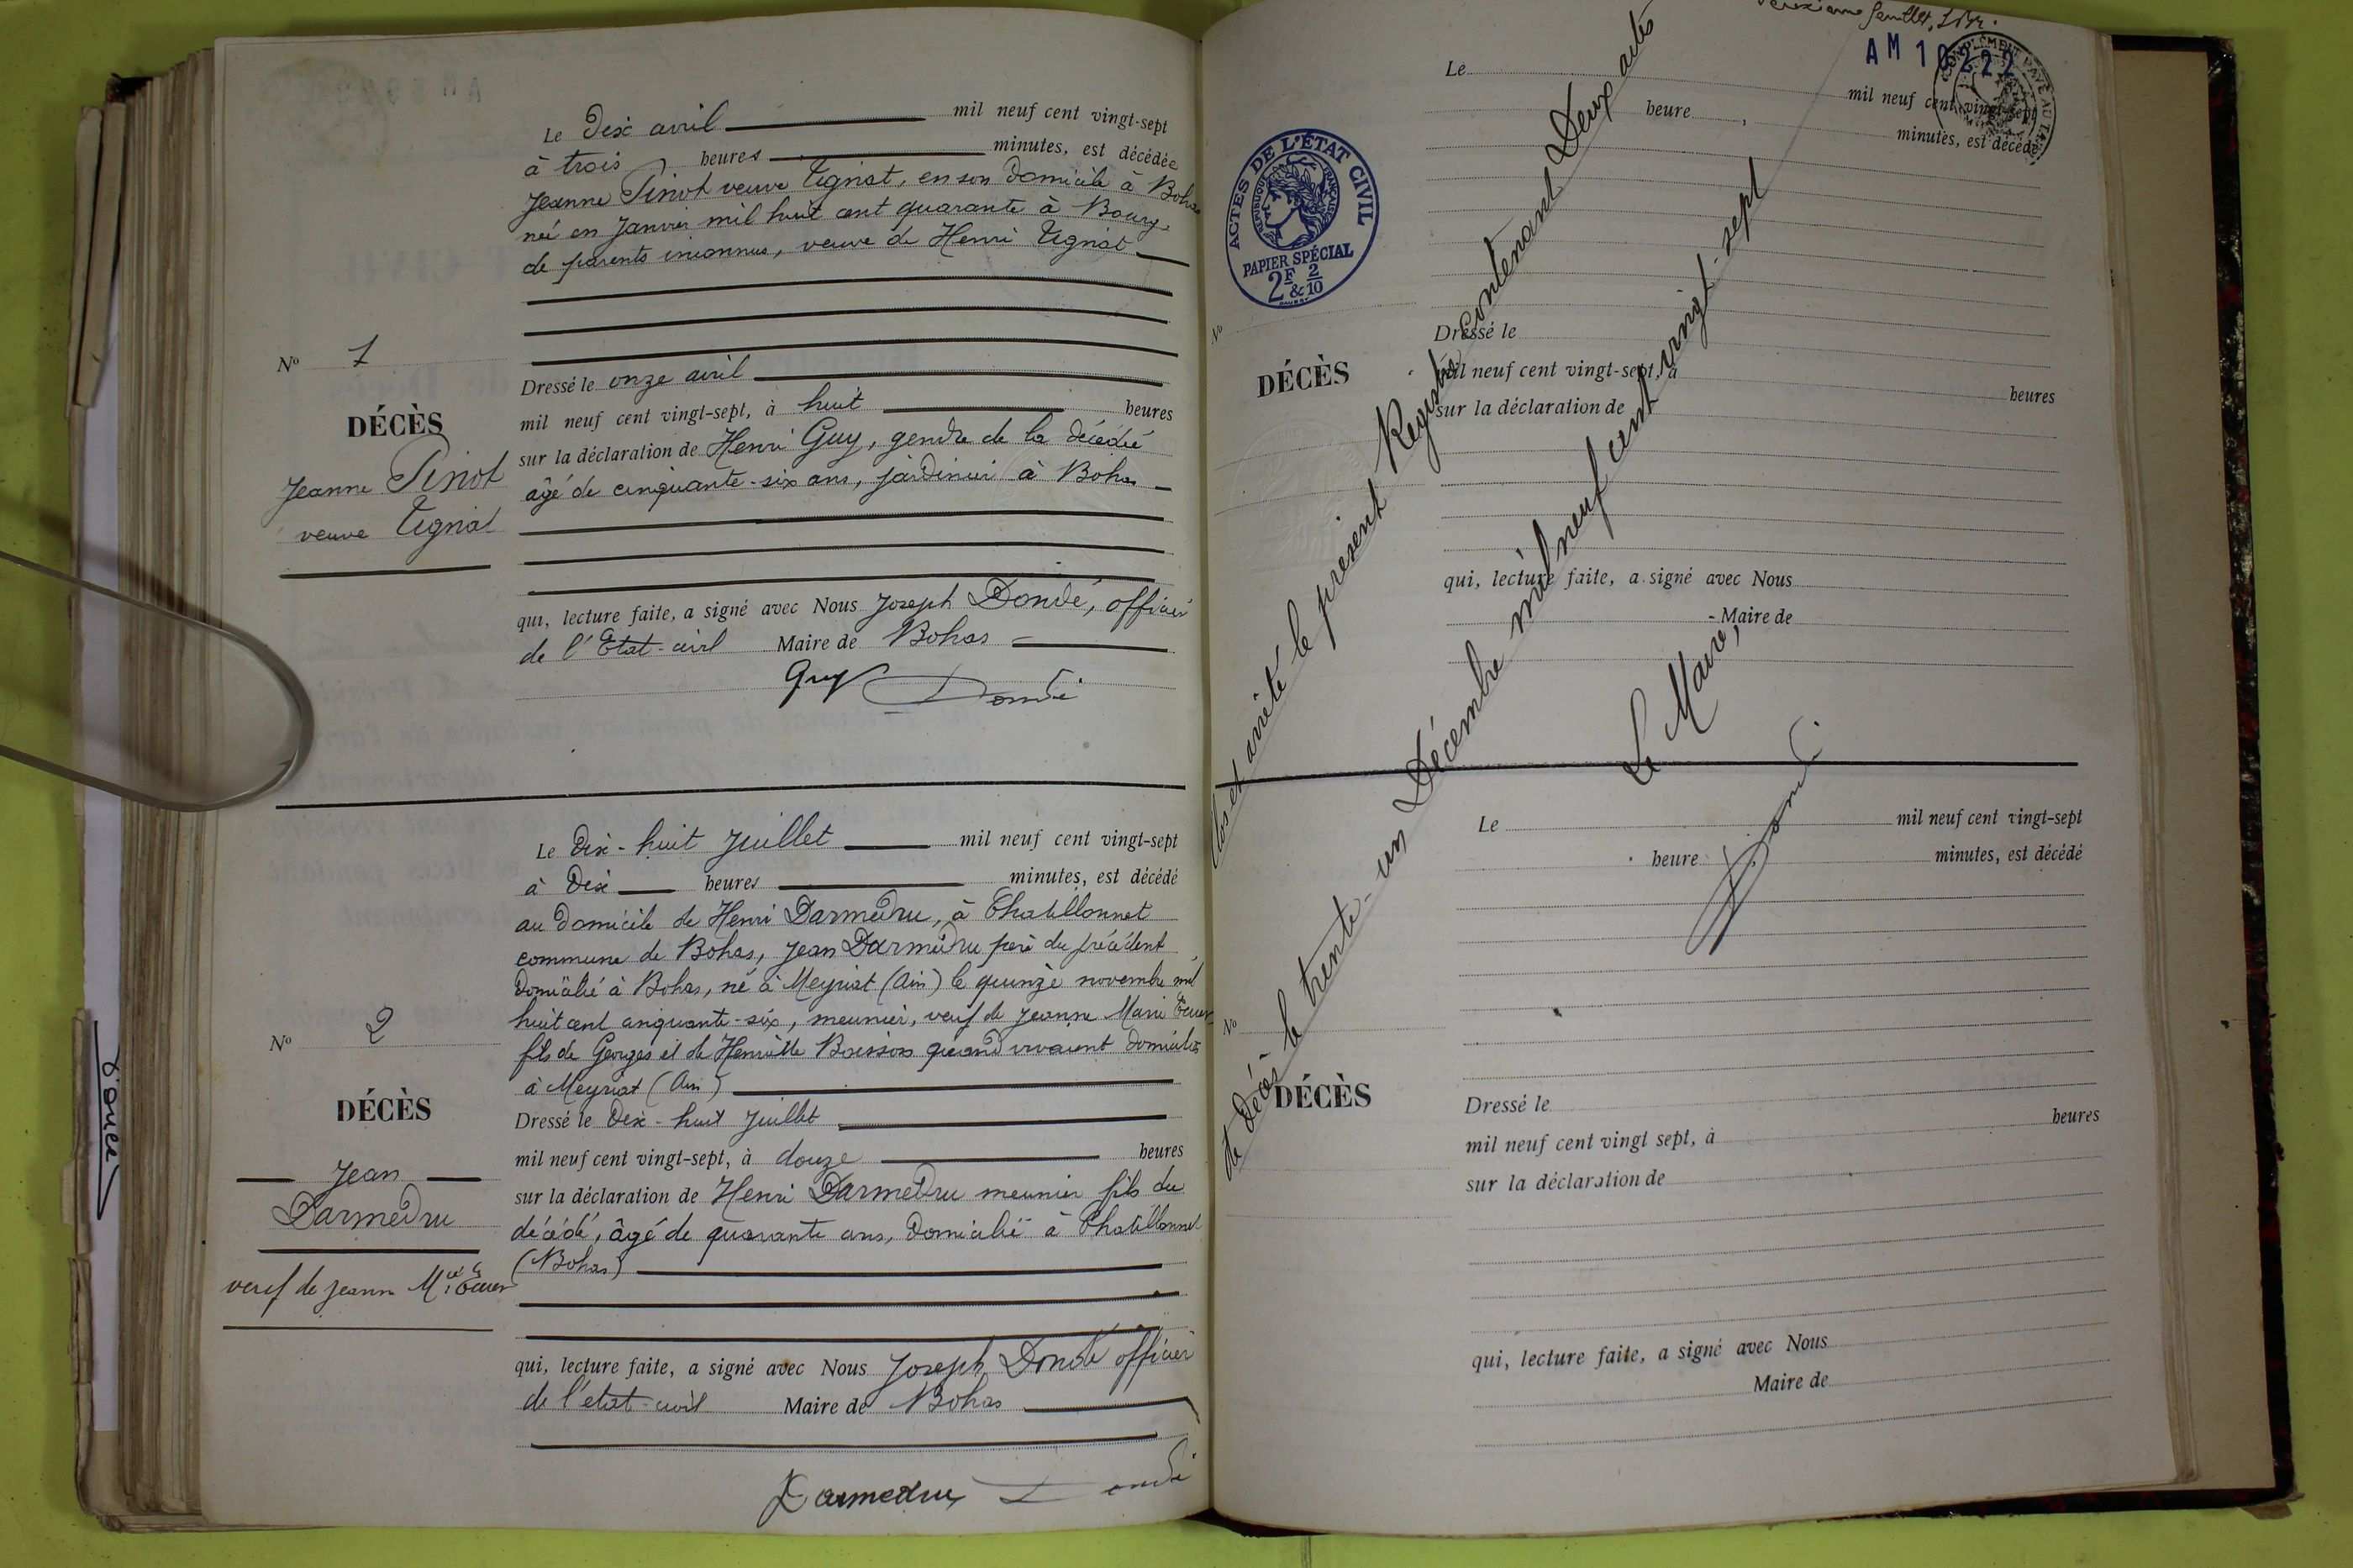 Le Dix avril mil neuf cent vingt-sept
à trois heures minutes, est décédée
Jeanne Pinot veuve Tignat, en son domicile à Bohas
née en Janvier mil huit cent quarante à Bourg,
de parents inconnus, veuve de Henri Tignat
Nº 1
DÉCÈS
Jeanne Pinot
veuve Tignat
Dressé le onze avril
mil neuf cent vingt-sept, à huit heures
sur la déclaration de Henri Guy, gendre de la décédée
âgé de cinquante-six ans, jardinier à Bohas
qui, lecture faite, a signé avec Nous Joseph Dondé, officier
de l'Etat-civil Maire de Bohas
Guy Dondé
Le Dix-huit Juillet mil neuf cent vingt-sept
à Dix heures minutes, est décédé
au domicile de Henri Darmedru, à Chatillonnet
commune de Bohas, Jean Darmedru père du précédent
domicilié à Bohas, né à Meyriat (Ain) le quinze novembre mil
huit cent cinquante-six, meunier, veuf de Jeanne Marie
fils de Georges et de Henriette Buisson quand vivaient domiciliés
à Meyriat (Ain)
Nº 2
DÉCÈS
Jean
Darmedru
veuf de Jeanne Mie
Dressé le Dix-huit Juillet
mil neuf cent vingt-sept, à douze heures
sur la déclaration de Henri Darmedru meunier fils du
décédé, âgé de quarante ans, domicilié à Chatillonnet
(Bohas)
qui, lecture faite, a signé avec Nous Joseph Dondé officier
de l'etat-civil Maire de Bohas
Darmedru Dondé
AM 10222
ACTES DE L'ÉTAT CIVIL
RÉPUBLIQUE FRANÇAISE
PAPIER SPÉCIAL
2F & 2/10
Le mil neuf cent vingt-sept
heure minutes, est décédé
Nº
DÉCÈS
Dressé le
mil neuf cent vingt-sept, à heures
sur la déclaration de
qui, lecture faite, a signé avec Nous
Maire de
Clos et arrêté le présent Registre contenant Deux actes
de décès le trente-un Décembre mil neuf cent vingt-sept
Le Maire,
J. Dondé
Le mil neuf cent vingt-sept
heure minutes, est décédé
Nº
DÉCÈS
Dressé le
mil neuf cent vingt sept, à heures
sur la déclaration de
qui, lecture faite, a signé avec Nous
Maire de